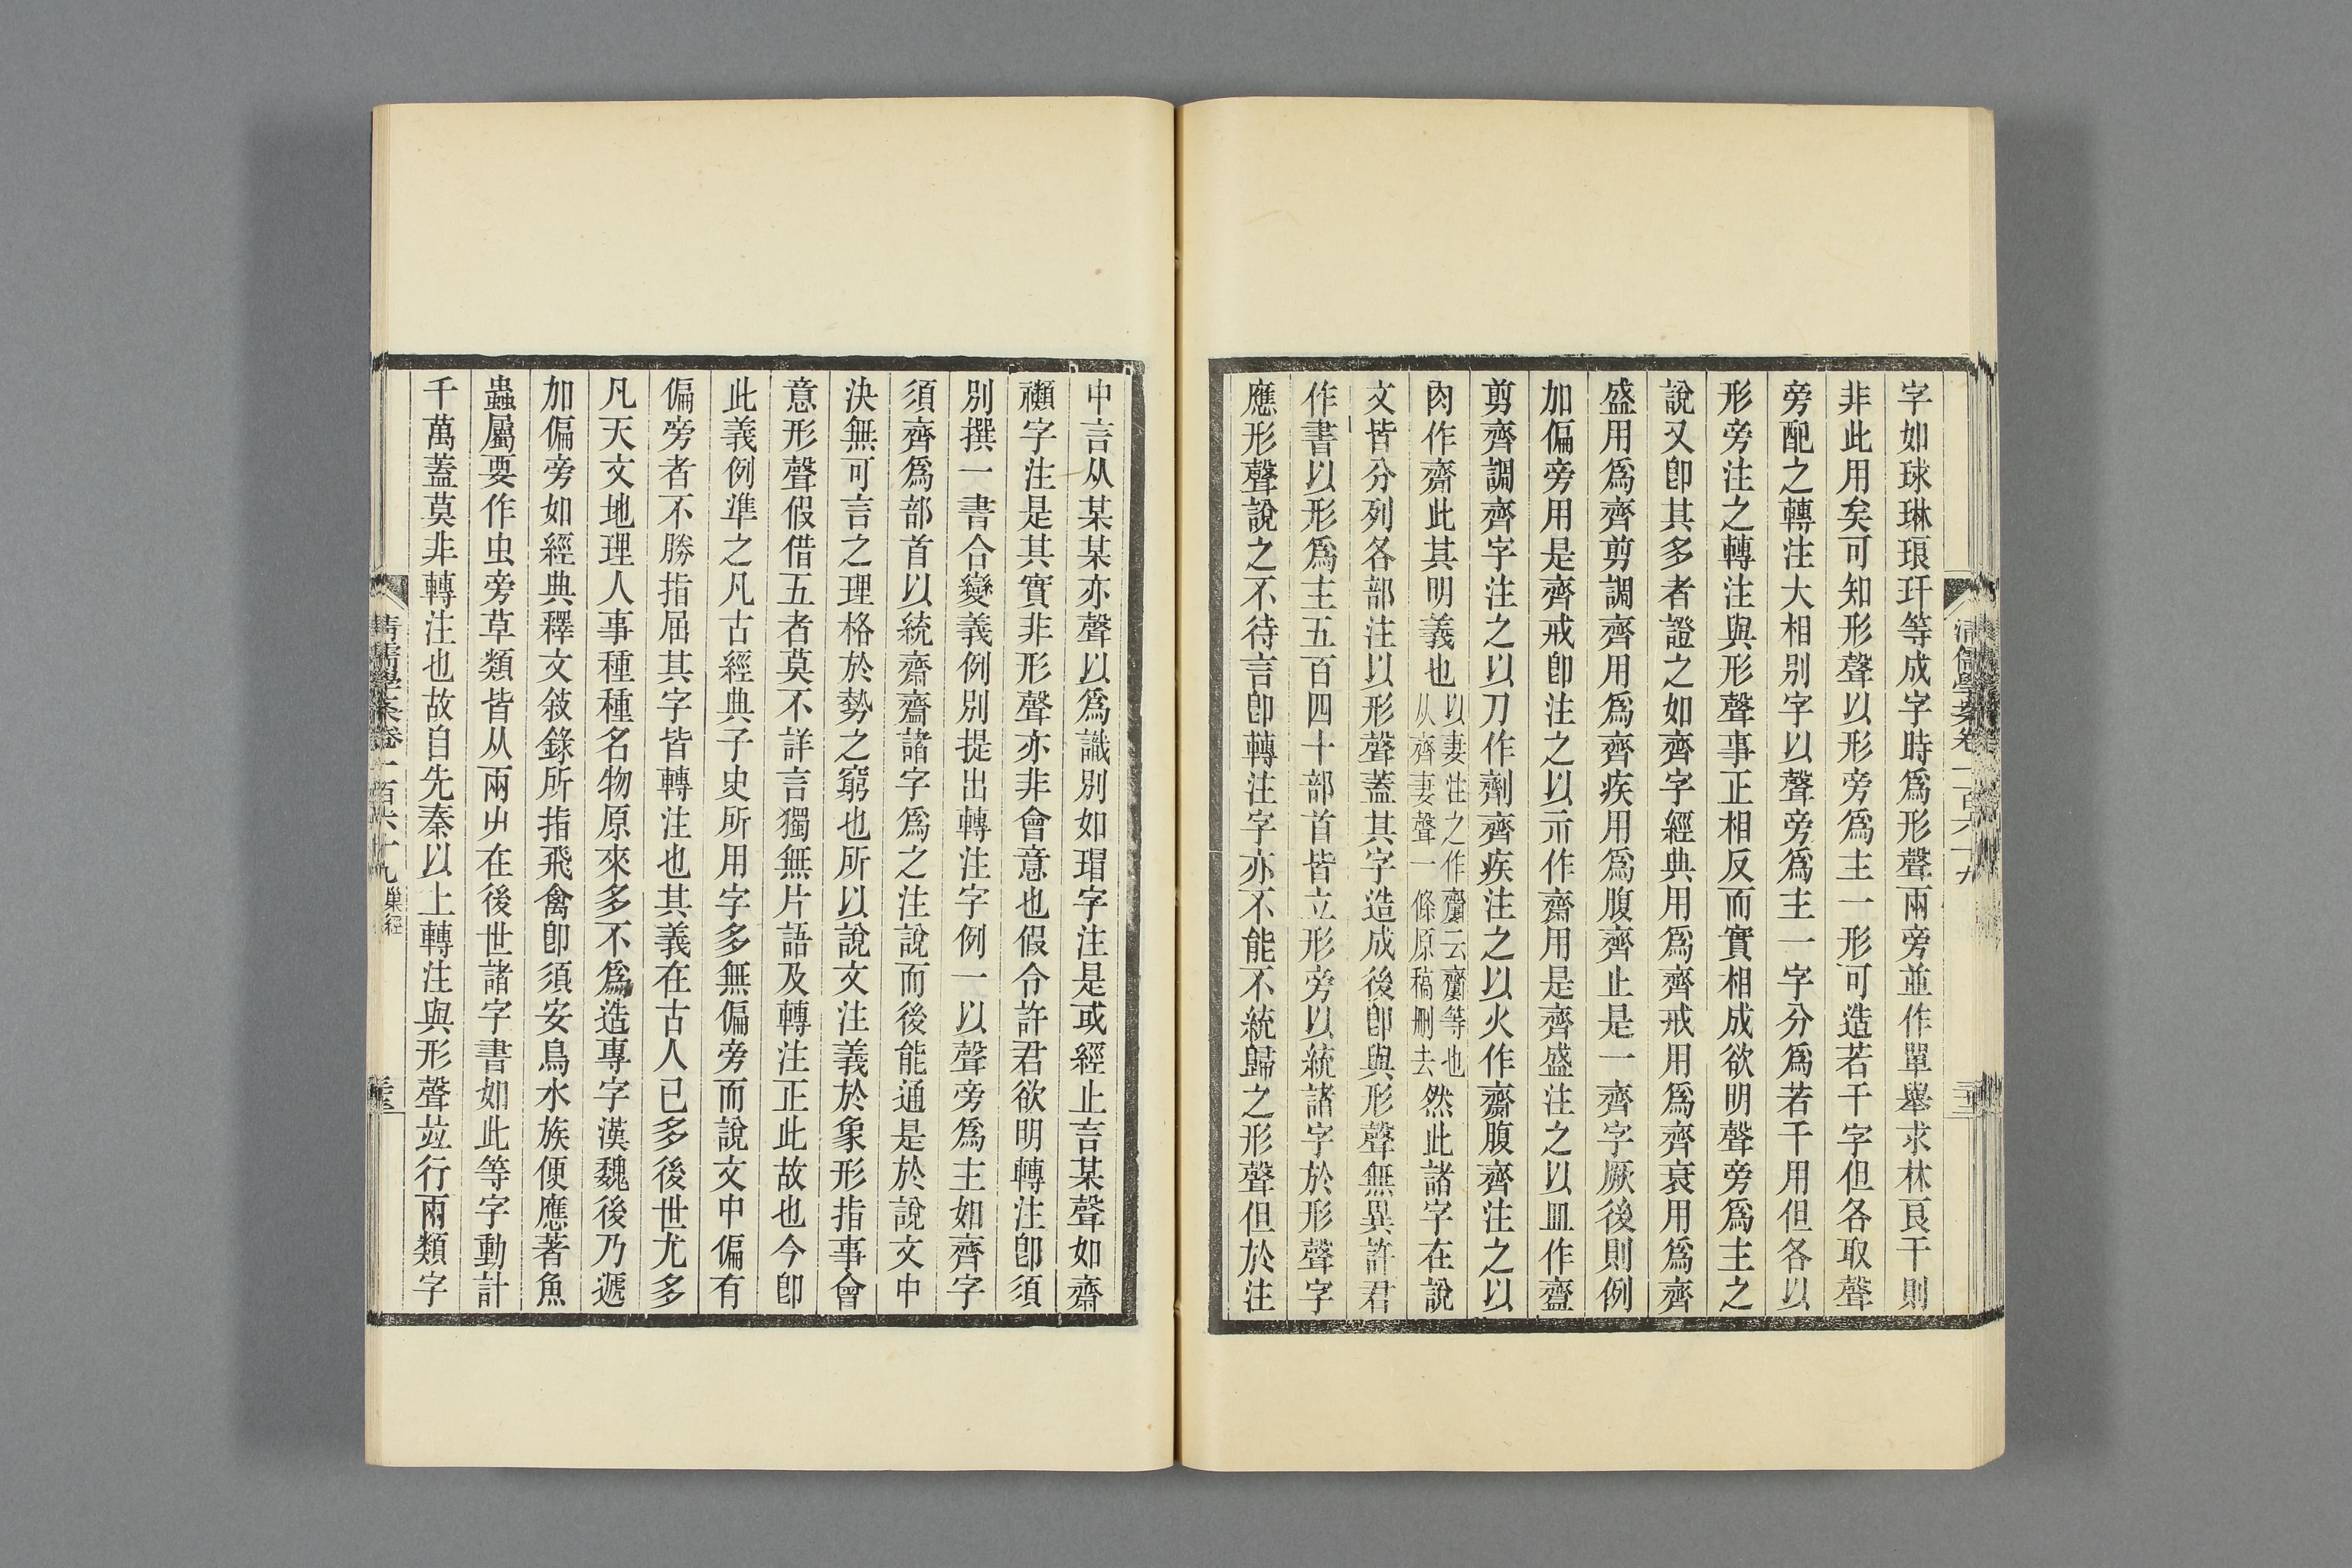 字如球琳琅玕等成字時爲形聲兩旁並作單舉求林良干則
非此用矣可知形聲以形旁爲主一形可造若干字但各取聲
旁配之轉注大相別字以聲旁爲主一字分爲若干用但各以
形旁注之轉注與形聲事正相反而實相成欲明聲旁爲主之
說又卽其多者證之如齊字經典用爲齊戒用爲齊衰用爲齊
盛用爲齊剪調齊用爲齊疾用爲腹齊止是一齊字厥後則例
加偏旁用是齊戒卽注之以示作齋用是齊盛注之以皿作齍
剪齊調齊字注之以刀作劑齊疾注之以火作齌腹齊注之以
肉作齎此其明義也以妻注之作齌云齌等也从齊妻聲一條原稿刪去然此諸字在說
文皆分列各部注以形聲蓋其字造成後卽與形聲無異許君
作書以形爲主五百四十部首皆立形旁以統諸字於形聲字
應形聲說之不待言卽轉注字亦不能不統歸之形聲但於注
中言从某某亦聲以爲識別如瑁字注是或經止言某聲如齋
禷字注是其實非形聲亦非會意也假令許君欲明轉注卽須
別撰一書合變義例別提出轉注字例一以聲旁爲主如齊字
須齊爲部首以統齋齍諸字爲之注說而後能通是於說文中
決無可言之理格於勢之窮也所以說文注義於象形指事會
意形聲假借五者莫不詳言獨無片語及轉注正此故也今卽
此義例準之凡古經典子史所用字多無偏旁而說文中偏有
偏旁者不勝指屈其字皆轉注也其義在古人已多後世尤多
凡天文地理人事種種名物原來多不爲造專字漢魏後乃遞
加偏旁如經典釋文敘錄所指飛禽卽須安鳥水族便應著魚
蟲屬要作虫旁草類皆从兩屮在後世諸字書如此等字動計
千萬蓋莫非轉注也故自先秦以上轉注與形聲竝行兩類字
清儒學案卷一百六十九 巢經